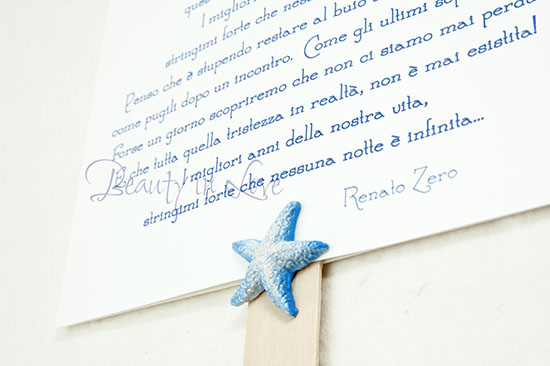 I migliori
stringimi forte che ness
Penso che è stupendo restare al buio
come pugili dopo un incontro. Come gli ultimi sop
Forse un giorno scopriremo che non ci siamo mai perdu
E che tutta quella tristezza in realtà, non è mai esistita!
I migliori anni della nostra vita,
stringimi forte che nessuna notte è infinita...
Renato Zero
Beauty in Love